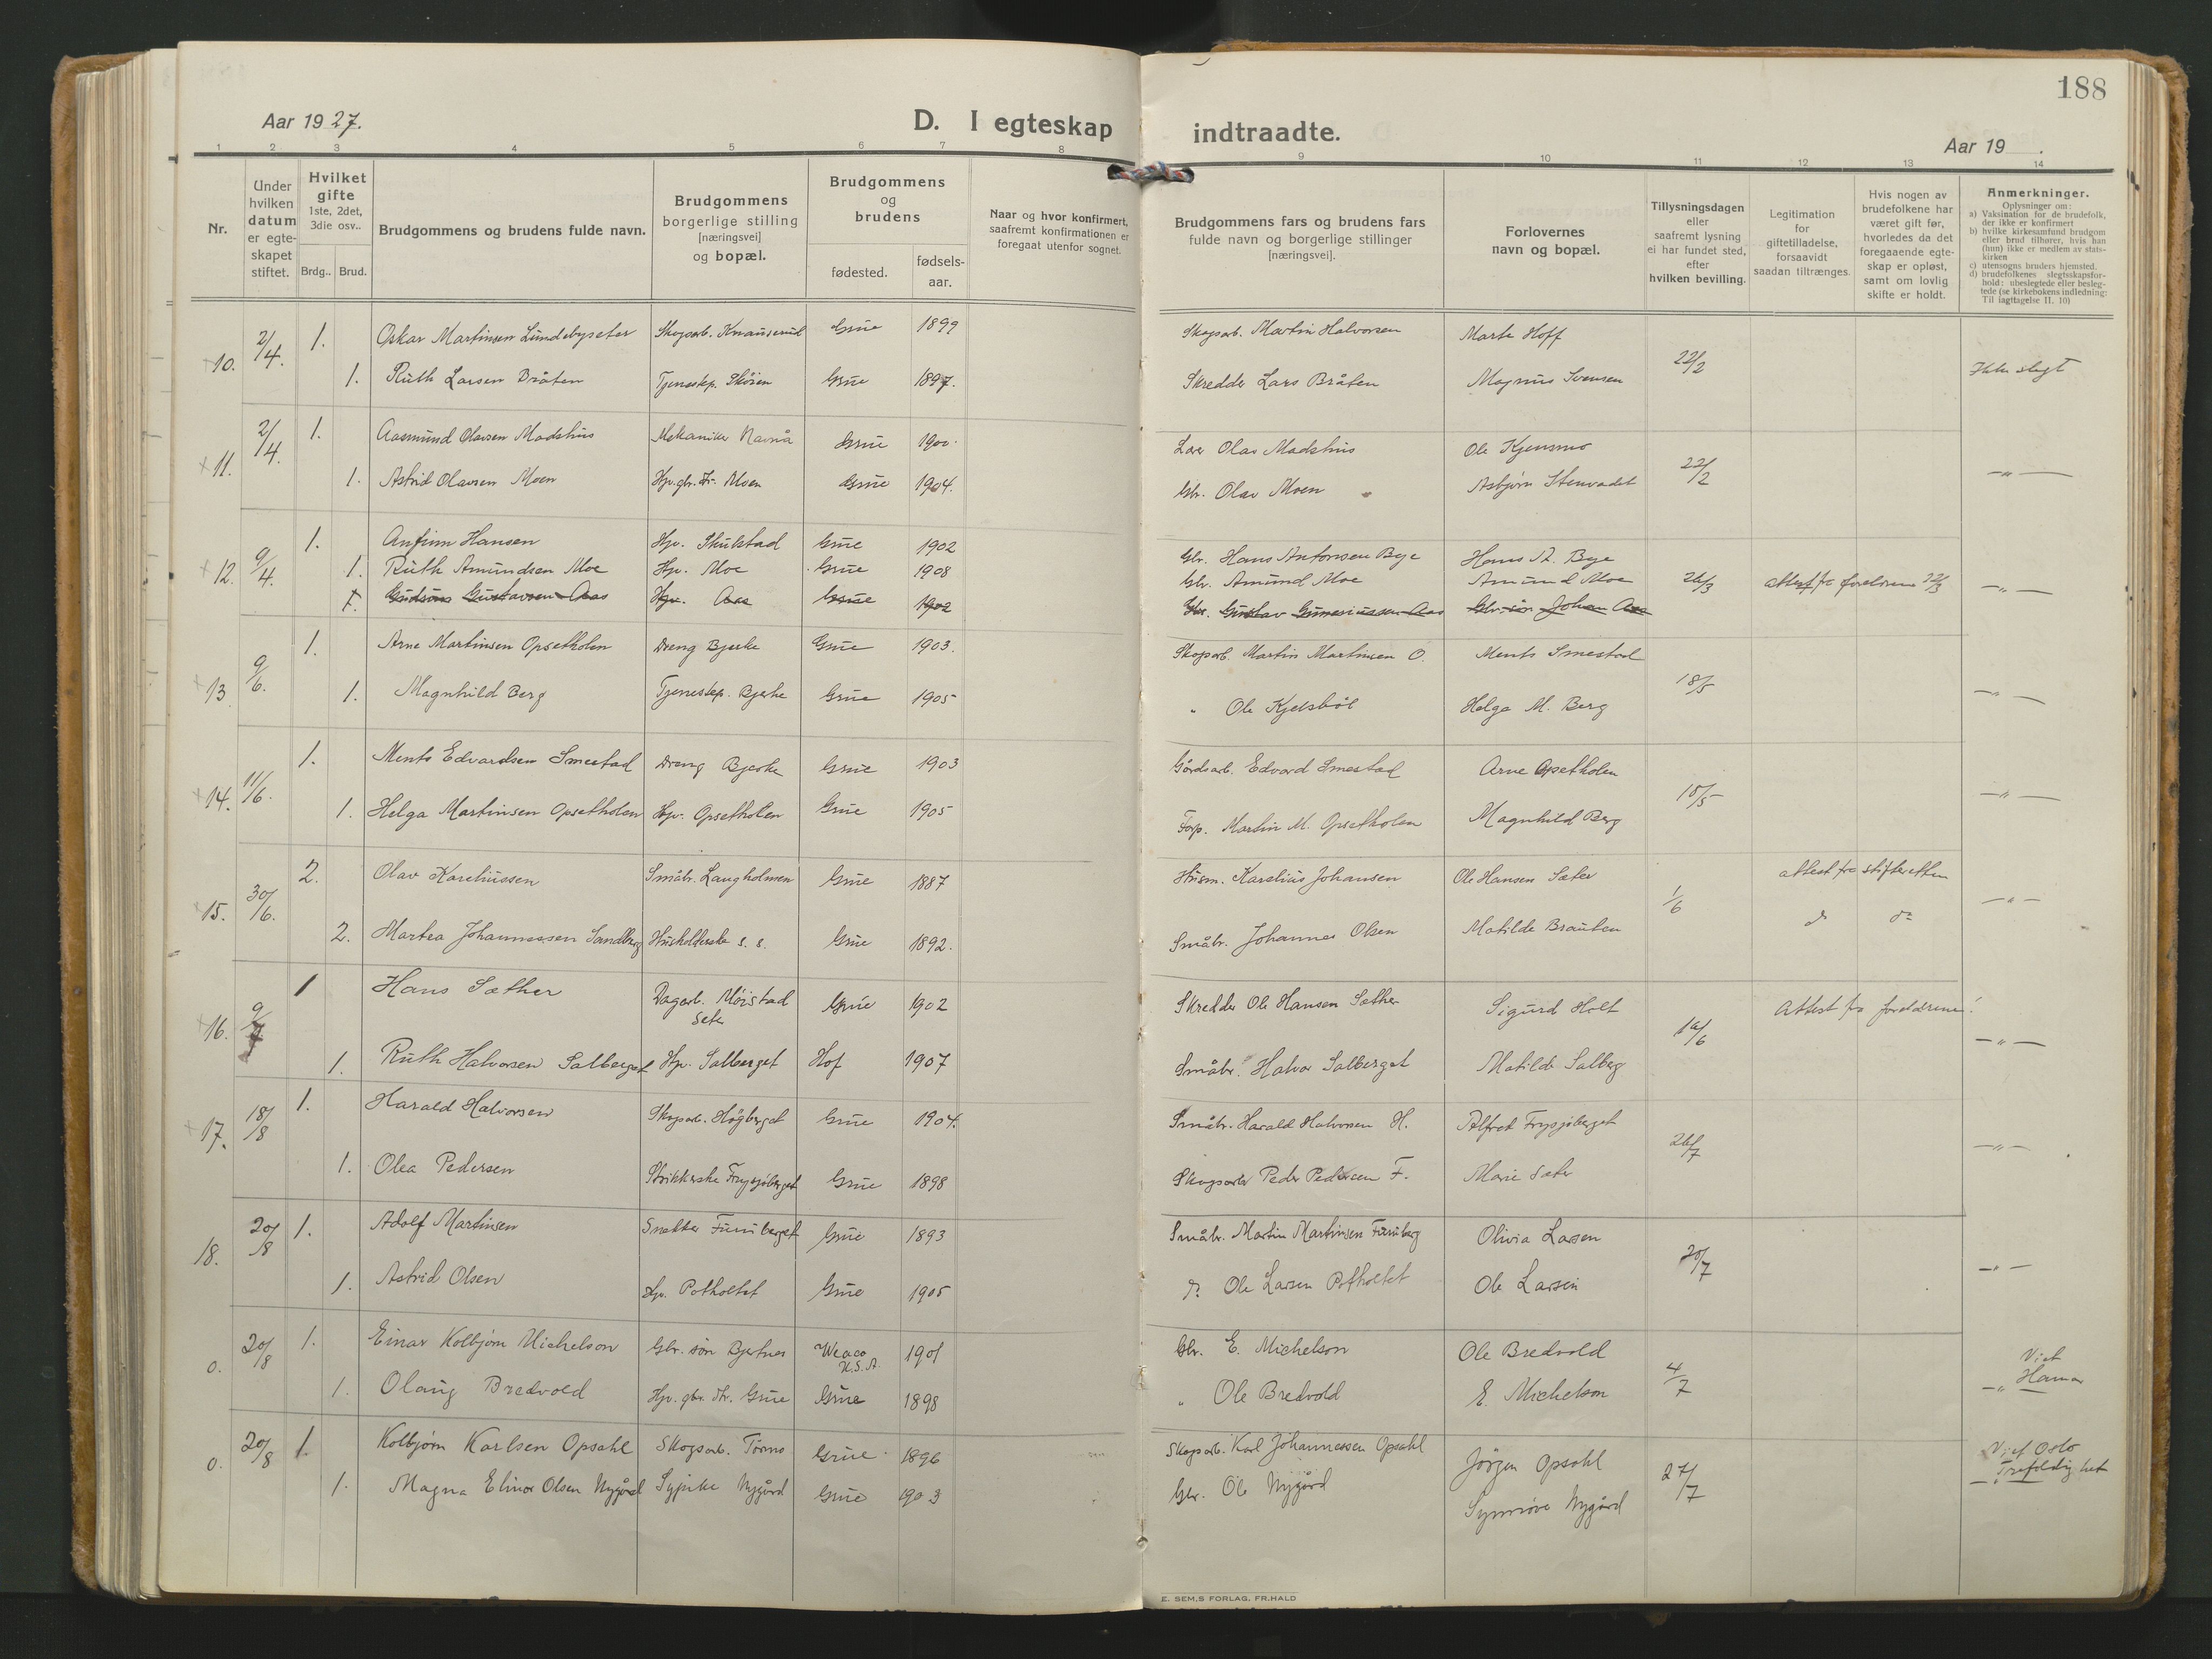 188
Aar 1927.
D. I egteskap indtraadte.
Aar 19 .
1 2 3 4 5 6 7 8 9 10 11 12 13 14
Nr.
Under hvilken datum er egte-skapet stiftet.
Hvilket gifte 1ste, 2det, 3die osv..
Brdg.. Brud.
Brudgommens og brudens fulde navn.
Brudgommens borgerlige stilling [næringsvei] og bopæl.
Brudgommens og brudens
fødested. fødsels-aar.
Naar og hvor konfirmert, saafremt konfirmationen er foregaat utenfor sognet.
Brudgommens fars og brudens fars fulde navn og borgerlige stillinger [næringsvei].
Forlovernes navn og bopæl.
Tillysningsdagen eller saafremt lysning ei har fundet sted, efter hvilken bevilling.
Legitimation for giftetilladelse, forsaavidt saadan tiltrænges.
Hvis nogen av brudefolkene har været gift før, hvorledes da det foregaaende egte-skap er opløst, samt om lovlig skifte er holdt.
Anmerkninger.
Oplysninger om:
a) Vaksination for de brudefolk, der ikke er konfirmert
b) hvilke kirkesamfund brudgom eller brud tilhører, hvis han (hun) ikke er medlem av stats-kirken
c) utensogns bruders hjemsted.
d) brudefolkenes slegtsskapsfor-hold: ubeslegtede eller besleg-tede (se kirkebokens indledning: Til iagttagelse II. 10)
10. 2/4. 1. Oskar Martinsen Lundebyseter Skogsarb. Knauserud Grue 1899 Skogsarb. Martin Halvorsen Marte Hoff 22/2 Ikke slegt
1. Ruth Larsen Bråten Tjenestep. Skören Grue 1897. Skredder Lars Bråten Magnus Svensen
11. 2/4. 1. Aasmund Olavsen Madshus Mekaniker Namnå Grue 1900. Lærer Olav Madshus Ole Kjensmo 22/2 — " —
1. Astrid Olavsen Moen Hjv. gbr. dtr. Moen Grue 1904. Gbr. Olav Moen Asbjørn Stenvadet
12. 9/4. 1. Anfinn Hansen Hjv. Skulstad Grue 1902 Gbr. Hans Antonsen Bye Hans A. Bye
1. Ruth Amundsen Moe Hjv. Moe Grue 1908 Gbr. Amund Moe Amund Moe 26/3 attest fra foreldrene 22/3 — " —
1. Gudrun Gustavsen Aas Hjv. Aas Grue 1902 Gbr. Gustav Gunneriussen Aas Gbr. sön Johan Aas
13 9/6. 1. Arne Martinsen Opsetholen Dreng Bjerke Grue 1903. Skogsarb. Martin Martinsen O. Ments Smestad 18/5 — " —
1. Magnhild Berg Tjenestep. Bjerke Grue 1905 " Ole Kjelsböl Helga M. Berg
14. 11/6. 1. Ments Edvardsen Smestad Dreng Bjerke Grue 1903 Gårdsarb. Edvard Smestad Arne Opsetholen 18/5 — " —
1. Helga Martinsen Opsetholen Hjv. Opsetholen Grue 1905 Forp. Martin M. Opsetholen Magnhild Berg
15. 30/6. 2. Olav Kareliussen Småbr. Langholmen Grue 1887 Husm. Karelius Johansen Ole Hansen Sæter 1/6 attest fra skifteretten — " —
2. Martea Johannessen Sandberg Husholderske s. s. Grue 1892. Småbr. Johannes Olsen Matilde Brauten do do
16. 9/7 1 Hans Sæther Dagarb. Möistad Seter Grue 1902 Skredder Ole Hansen Sæther Sigurd Holt 16/6 Attest fra foreldrene! — " —
1. Ruth Halvorsen Salberget Hjv. Salberget Hof 1907 Småbr. Halvor Salberget Matilde Salberg
17. 18/8 1. Harald Halvorsen Skogsarb. Högberget Grue 1904. Småbr. Harald Halvorsen H. Alfred Frysjøberget 26/7 — " —
1. Olea Pedersen Strikkerske Frysjøberget Grue 1898 Skogsarb Peder Pedersen F. Marie Seter
18. 20/8 1. Adolf Martinsen Snekker Furuberget Grue 1893 Småbr. Martin Martinsen Furuberg Olivia Larsen 20/7 — " —
1. Astrid Olsen Hjv. Potholtet Grue 1905 do Ole Larsen Potholtet Ole Larsen
0. 20/8 1. Einar Kolbjørn Michelson Gbr. sön Bjertnes Weaco U.S.A. 1901 Gbr. E. Michelson Ole Bredvold 4/7 Viet Hamar
1. Olaug Bredvold Hjv. gbr. dtr. Grue Grue 1898 " Ole Bredvold E. Michelson — "
0. 20/8 1. Kolbjørn Karlsen Opsahl Skogsarb. Törmo Grue 1896 Skogsarb. Karl Johannessen Opsahl Jörgen Opsahl 27/7 Viet Oslo Trefoldighet
1. Magna Elinor Olsen Nygård Sypike Nygård Grue 1903 Gbr. Ole Nygård Synnöve Nygård
E. SEM,S FORLAG, FR.HALD